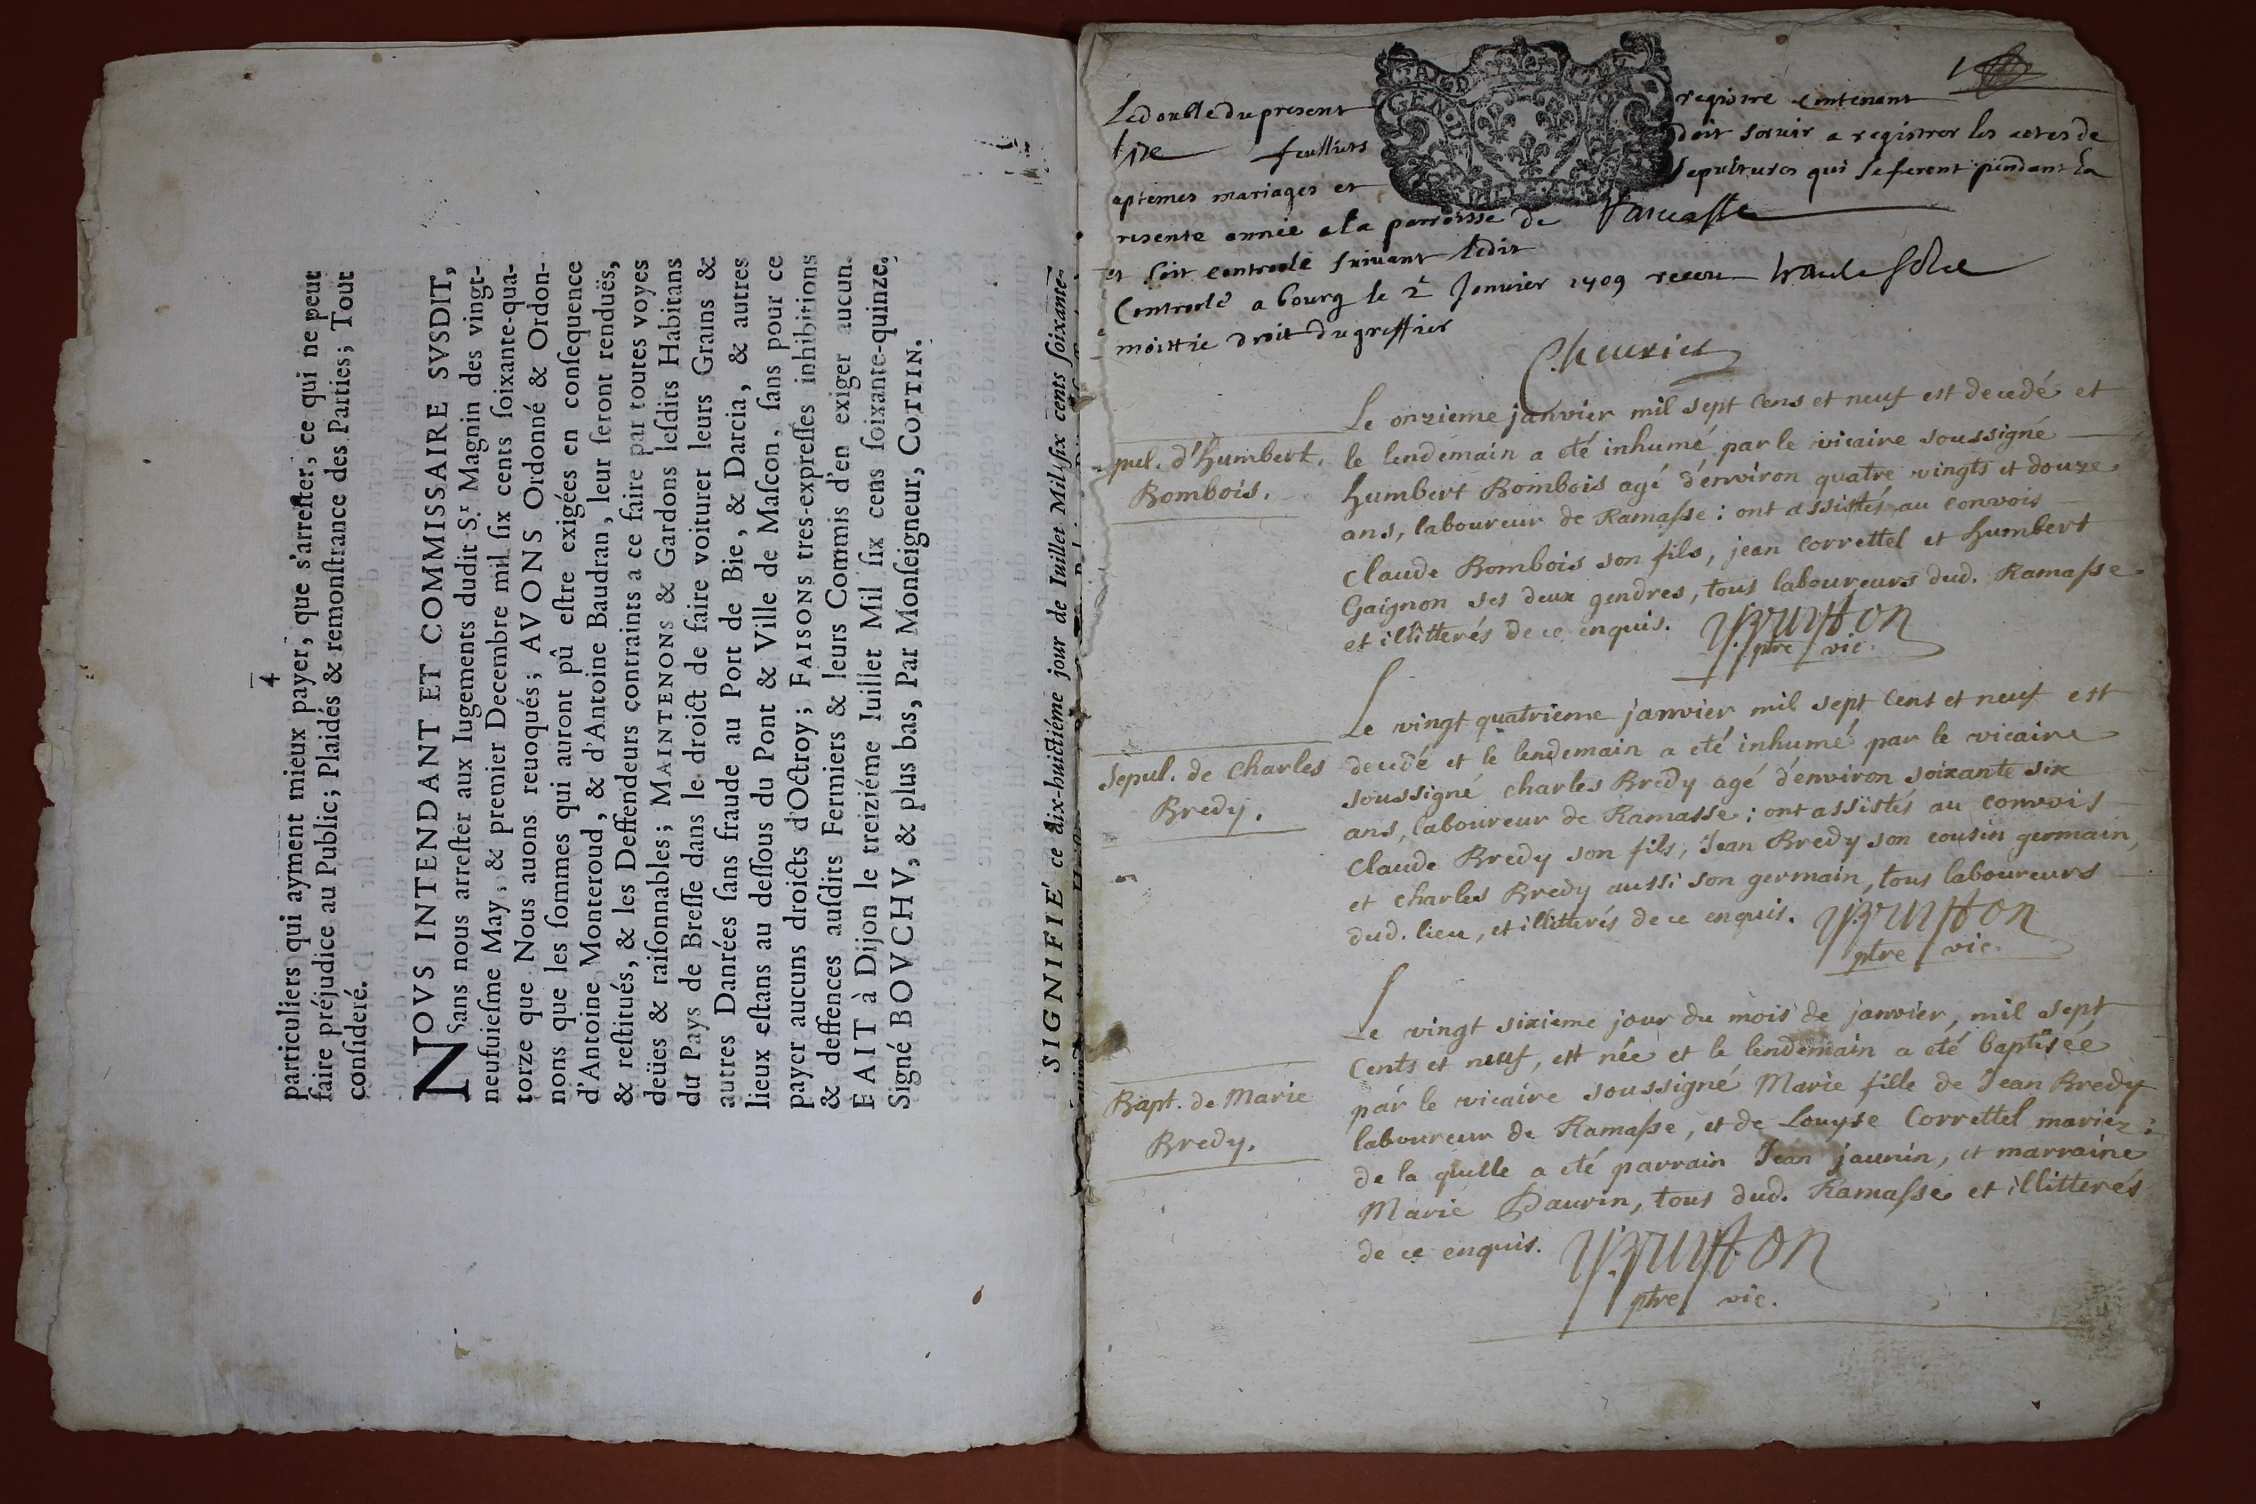 4
particuliers qui ayment mieux payer, que s'arreſter, ce qui ne peut
faire préjudice au Public; Plaidés & remonſtrance des Parties; Tout
conſideré.
NOVS INTENDANT ET COMMISSAIRE SVSDIT,
Sans nous arreſter aux Iugements dudit S.r Magnin des vingt-
neufuieſme May, & premier Decembre mil ſix cents ſoixante-qua-
torze que Nous auons reuoqués; AVONS Ordonné & Ordon-
nons que les ſommes qui auront pû eſtre exigées en conſequence
d'Antoine Monteroud, & d'Antoine Baudran, leur ſeront renduës,
& reſtitués, & les Deffendeurs contraints a ce faire par toutes voyes
deües & raiſonnables; MAINTENONS & Gardons leſdits Habitans
du Pays de Breſſe dans le droict de faire voiturer leurs Grains &
autres Danrées ſans fraude au Port de Bie, & Darcia, & autres
lieux eſtans au deſſous du Pont & Ville de Maſcon, ſans pour ce
payer aucuns droicts d'Octroy; FAISONS tres-expreſſes inhibitions
& deffences auſdits Fermiers & leurs Commis d'en exiger aucun.
FAIT à Dijon le treiziéme Iuillet Mil ſix cens ſoixante-quinze.
Signé BOVCHV, & plus bas, Par Monſeigneur, COTTIN.
SIGNIFIE' ce dix-huictiéme jour de Iuillet Mil ſix cents ſoixante-
GEN
Le double du present registre contenant
feullets doit servir a registrer les actes de
aptemes mariages et sepultures qui se feront pendant la
resente annee a la parroisse de Ramasse
et soit controole suivant ledit
Controolé a bourg le 2e Janvier 1709 receu
moittie droit du greffier
Cheurier
pul. d'humbert
Bombois.
Le onzieme janvier mil sept cens et neuf est decedé et
le lendemain a eté inhumé par le vicaire soussigné
humbert Bombois agé d'environ quatre vingts et douze
ans, laboureur de Ramasse: ont assistés au convois
claude Bombois son fils, jean correttel et humbert
Gaignon ses deux gendres, tous laboureurs dud. Ramasse
et illitterés de ce enquis.
ptre vic.
Sepul. de charles
Bredy.
Le vingt quatrieme janvier mil sept cens et neuf est
decedé et le lendemain a eté inhumé par le vicaire
soussigné charles Bredy agé d'environ soixante six
ans, laboureur de Ramasse; ont assistés au convois
claude Bredy son fils, Jean Bredy son cousin germain,
et charles Bredy aussi son germain, tous laboureurs
dud. lieu, et illitterés de ce enquis.
ptre vic.
Bapt. de Marie
Bredy.
Le vingt sixieme jour du mois de janvier, mil sept
cents et neuf, est née et le lendemain a eté baptisée
par le vicaire soussigné Marie fille de Jean Bredy
laboureur de Ramasse, et de Louyse Correttel mariez:
de la quelle a eté parrain Jean jaunin, et marraine
Marie Daurin, tous dud. Ramasse et illitterés
de ce enquis.
ptre vic.